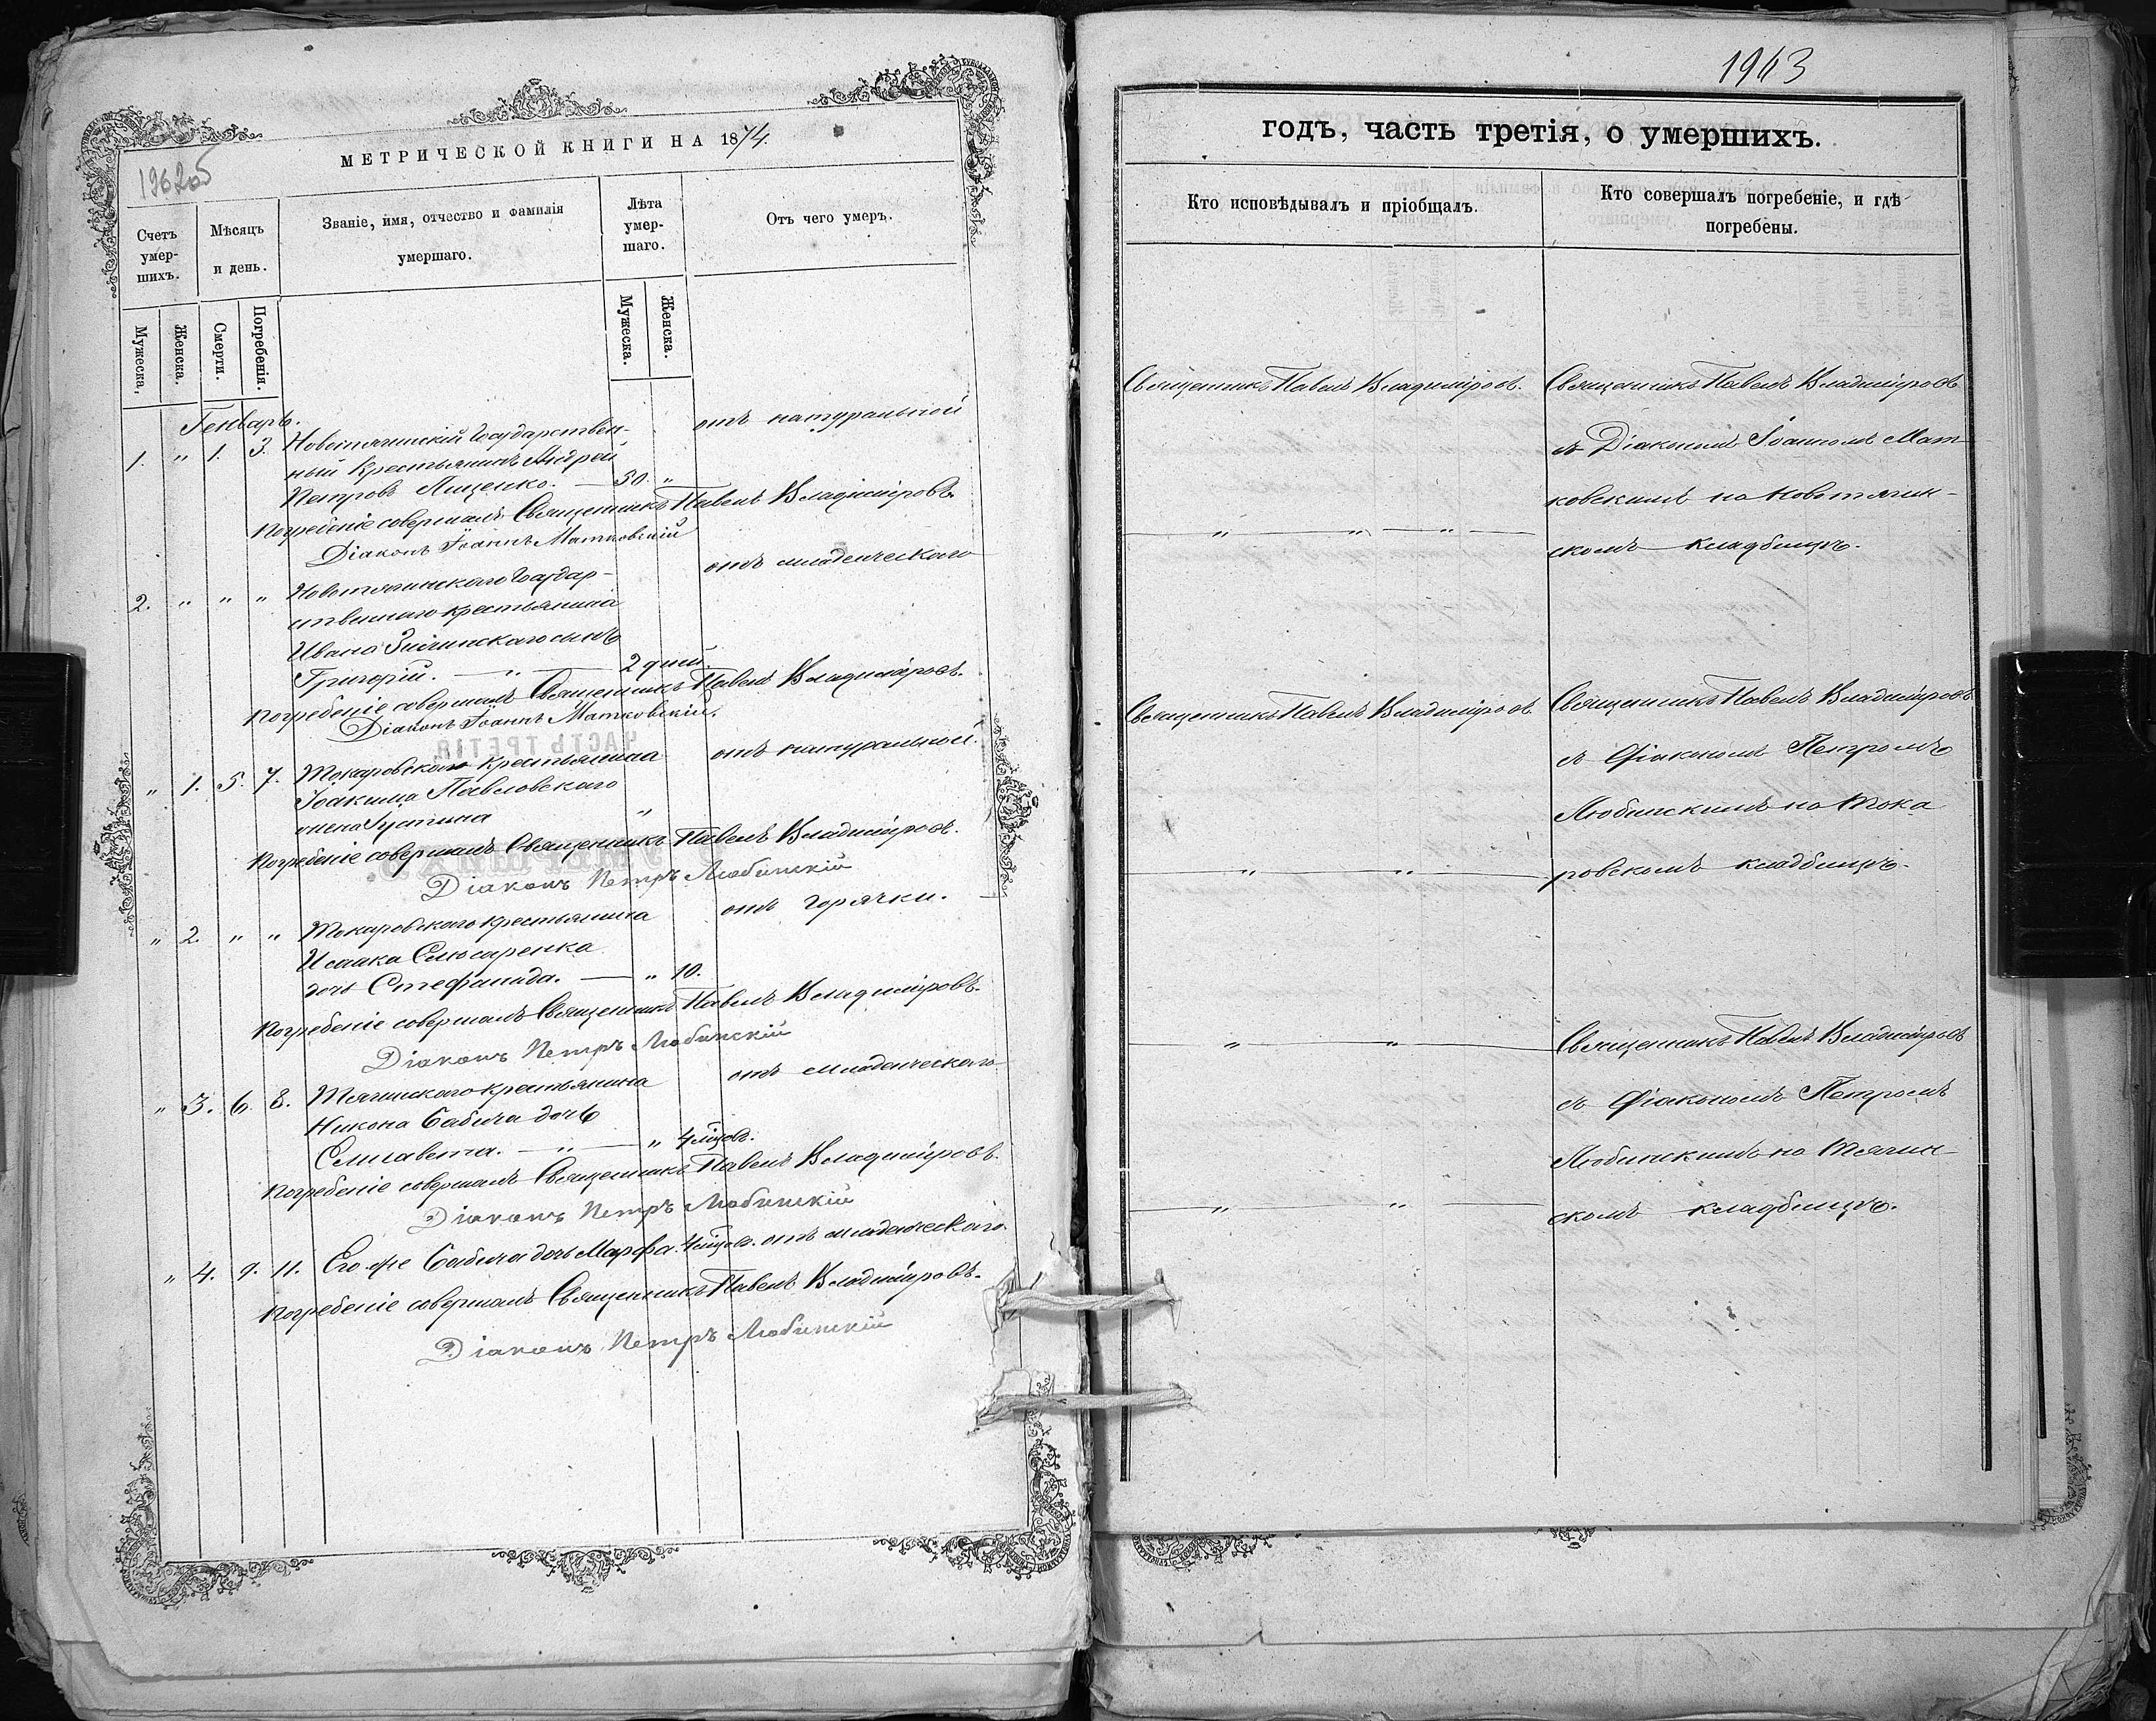 МЕТРИЧЕСКОЙ КНИГИ НА 1874.
1962об
Счетъ умер-шихъ.
Мѣсяцъ и день.
Званіе, имя, отчество и фамилія умершаго.
Лѣта умер-шаго.
Отъ чего умеръ.
Мужеска.
Женска.
Смерти.
Погребенія.
Мужеска.
Женска.
Генварь.
1. " 1. 3. Новотягинскій Государствен- отъ натуральной
ный крестьянинъ Андрей
Петровъ Лищенко. — 30. "
Погребеніе совершалъ Священникъ Павелъ Владиміровъ.
Діаконъ Іоаннъ Матковскій
2. " " " Новотягинскаго Государ- отъ младенческаго
ственнаго крестьянина
Ивана сынъ
Григорій. — " — 2 дней.
Погребеніе совершалъ Священникъ Павелъ Владиміровъ.
Діаконъ Іоаннъ Матковскій.
" 1. 5. 7. Токаровскаго крестьянина отъ натуральной.
Іоакима Павловскаго
жена Іустина "
Погребеніе совершалъ Священникъ Павелъ Владиміровъ.
Діаконъ Петръ Любинскій
" 2. " " Токаровскаго крестьянина отъ горячки.
Исаака Слюсаренка
дочь Стефанида. — " 10.
Погребеніе совершалъ Священникъ Павелъ Владиміровъ.
Діаконъ Петръ Любинскій
" 3. 6. 8. Тягинскаго крестьянина отъ младенческаго
Никона Бабича дочь
Елисавета. — " — " 4 мѣцов.
Погребеніе совершалъ Священникъ Павелъ Владиміровъ.
Діаконъ Петръ Любинскій
" 4. 9. 11. Его-же Бабича дочь Марфа. 4 мѣцов. отъ младенческаго.
Погребеніе совершалъ Священникъ Павелъ Владиміровъ.
Діаконъ Петръ Любинскій
1963
годъ, часть третія, о умершихъ.
Кто исповѣдывалъ и пріобщалъ.
Кто совершалъ погребеніе, и гдѣ
погребены.
Священникъ Павелъ Владиміровъ. Священникъ Павелъ Владиміровъ
съ Діакономъ Іоанномъ Мат-
ковскимъ на Новотягин-
— " — " — " —
скомъ кладбищѣ.
Священникъ Павелъ Владиміровъ. Священникъ Павелъ Владиміровъ
съ Діакономъ Петромъ
Любинскимъ на Тока
— " — " —
ровскомъ кладбищѣ.
— " — " — Священникъ Павелъ Владиміровъ
съ Діакономъ Петромъ
Любинскимъ на Тягин-
— " — " —
скомъ кладбищѣ.